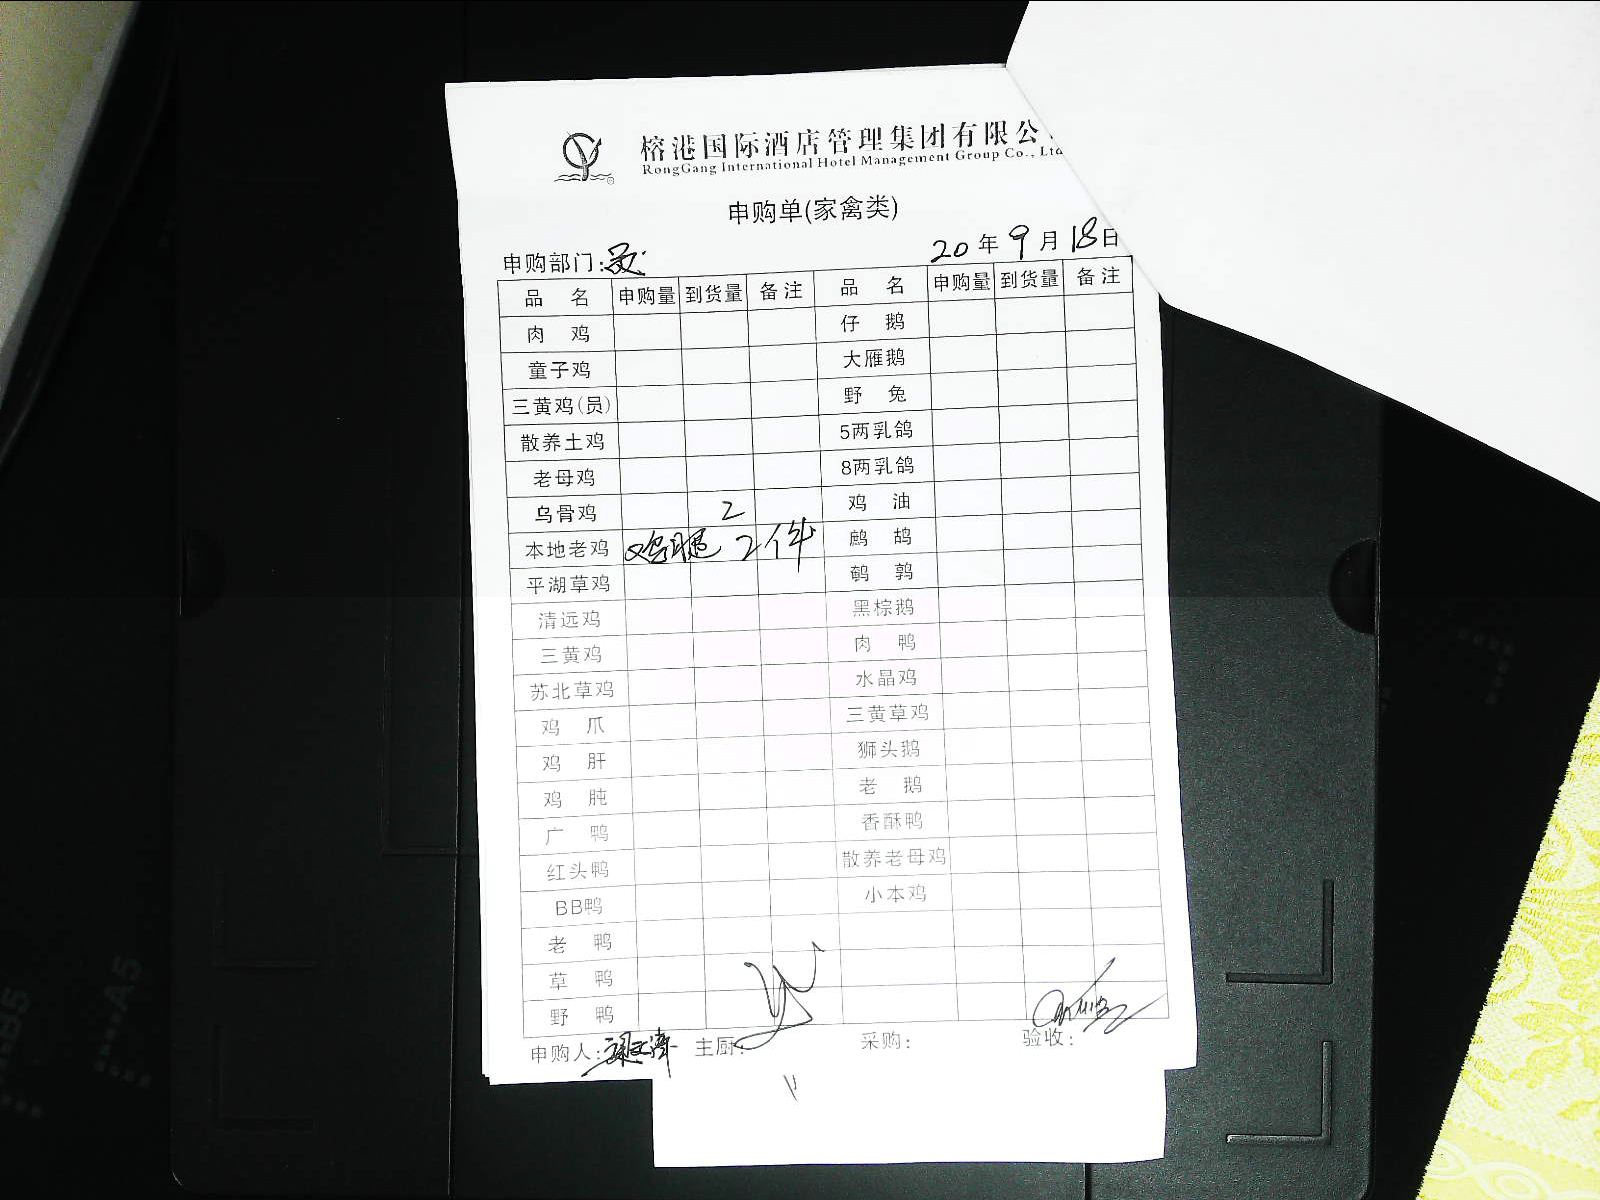 榕港国际酒店管理集团有限公
RongGang International Hotel Management Group Co., Ltd
申购单(家禽类)
申购部门: 20年9月18日
品名 申购量 到货量 备注 品名 申购量 到货量 备注
肉鸡 仔鹅
童子鸡 大雁鹅
三黄鸡(员) 野兔
散养土鸡 5两乳鸽
老母鸡 8两乳鸽
乌骨鸡 2 鸡油
本地老鸡 鸡腿 2件 鹧鸪
平湖草鸡 鹌鹑
清远鸡 黑棕鹅
三黄鸡 肉鸭
苏北草鸡 水晶鸡
鸡爪 三黄草鸡
鸡肝 狮头鹅
鸡肫 老鹅
广鸭 香酥鸭
红头鸭 散养老母鸡
BB鸭 小本鸡
老鸭
草鸭
野鸭
申购人: 主厨: 采购: 验收:
B5
A5